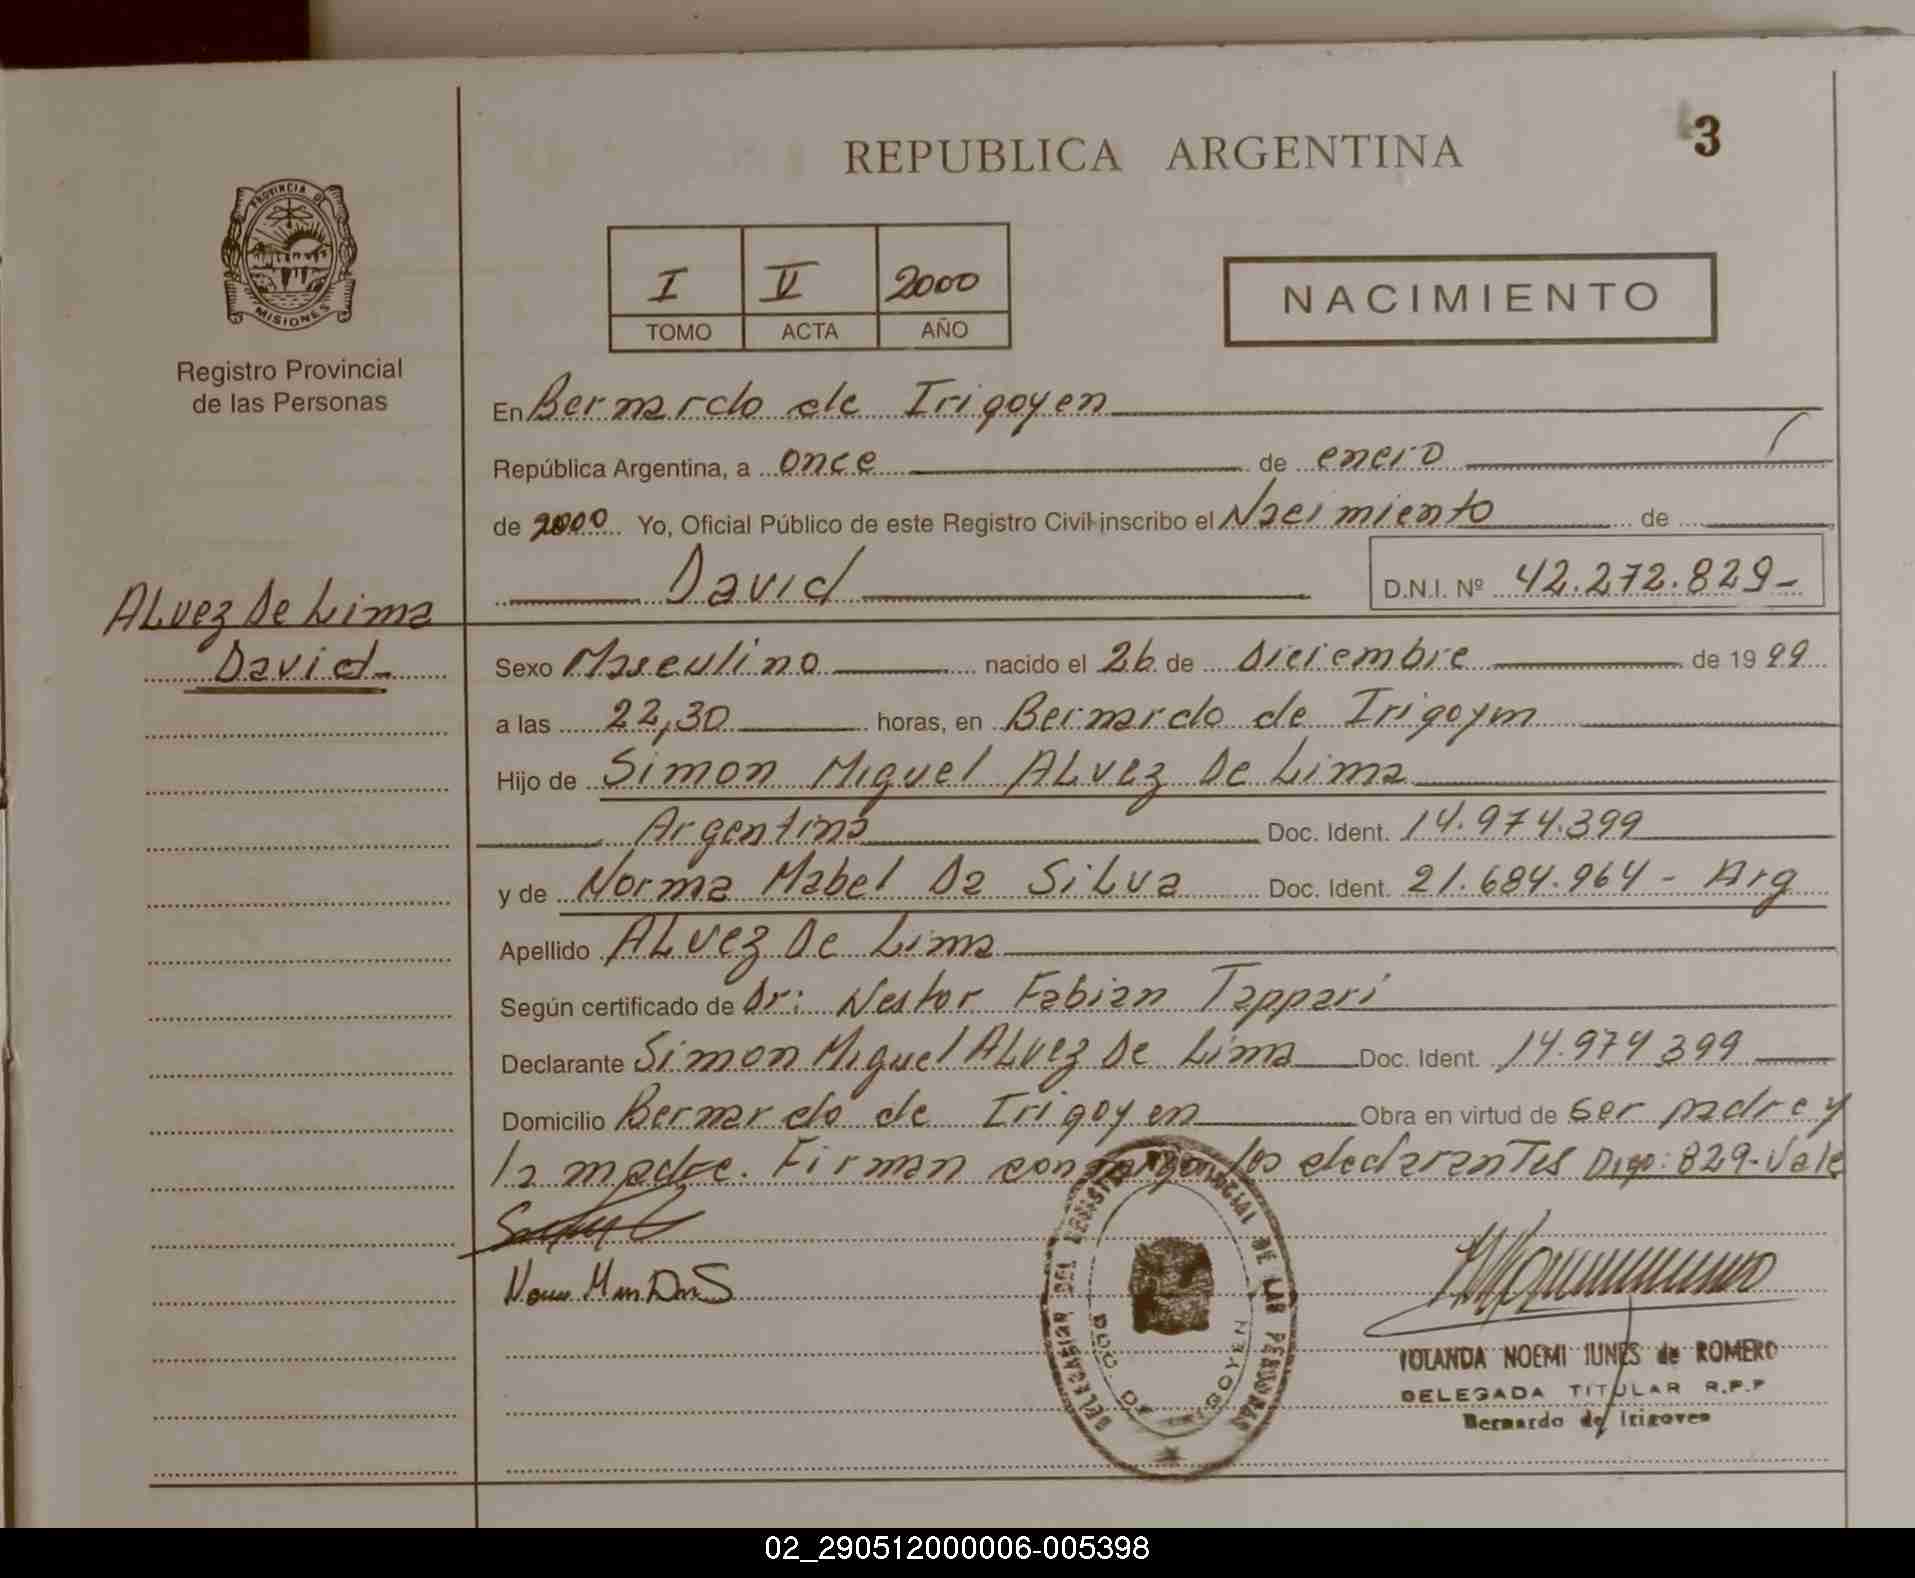 REPUBLICA ARGENTINA
3
PROVINCIA DE
MISIONES
Registro Provincial
de las Personas
I V 2000
TOMO ACTA AÑO
NACIMIENTO
En Bernardo de Irigoyen
República Argentina, a once de enero
de 2000 Yo, Oficial Público de este Registro Civil inscribo el Nacimiento de
David
D.N.I. Nº 42.272.829-
ALvez De Lima
David-
Sexo Masculino nacido el 26 de Diciembre de 1999
a las 22,30 horas, en Bernardo de Irigoyen
Hijo de Simon Miguel ALvez De Lima
Argentina Doc. Ident. 14.974.399
y de Norma Mabel Da SiLva Doc. Ident. 21.684.964 - Arg
Apellido ALvez De Lima
Según certificado de Dr: Nestor Fabian Tappari
Declarante Simon Miguel ALvez De Lima Doc. Ident. 14.974 399
Domicilio Bernardo de Irigoyen Obra en virtud de ser padre y
la madre. Firman conmigo los declarantes Digo: 829-Vale
DELEGACION DEL REGISTRO PROVINCIAL DE LAS PERSONAS
BDO. DE IRIGOYEN
YOLANDA NOEMI IUNES de ROMERO
DELEGADA TITULAR R.P.P
Bernardo de Irigoyen
02_290512000006-005398